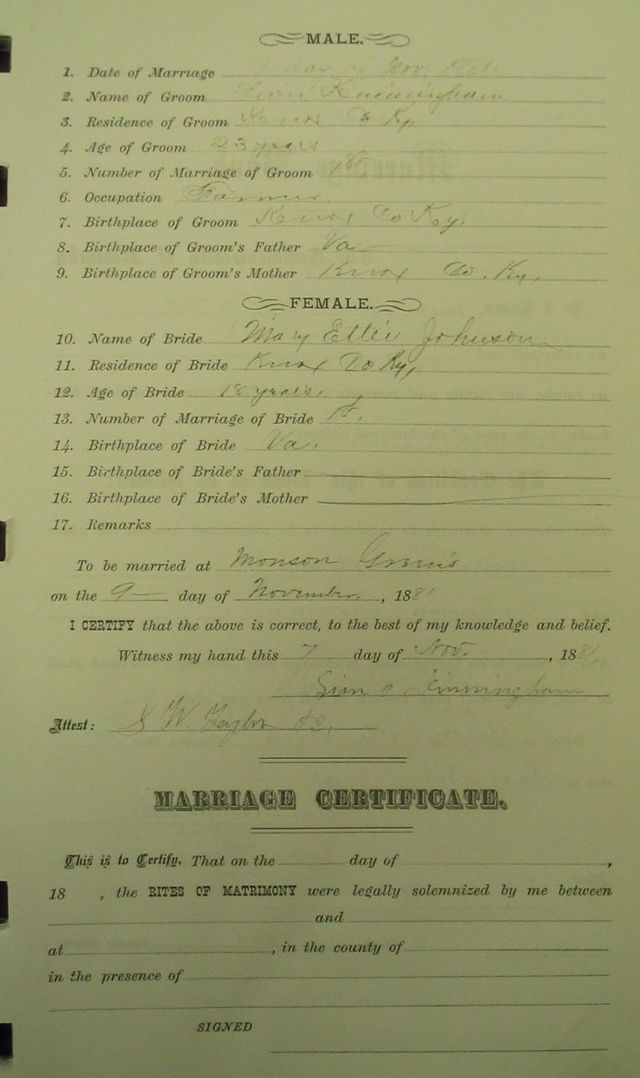 MALE.
1. Date of Marriage Nov
2. Name of Groom
3. Residence of Groom Knox Co Ky
4. Age of Groom 23 years
5. Number of Marriage of Groom 1st
6. Occupation Farmer.
7. Birthplace of Groom Knox Co Ky.
8. Birthplace of Groom's Father Va
9. Birthplace of Groom's Mother Knox Co. Ky.
FEMALE.
10. Name of Bride Mary Ettie Johnson
11. Residence of Bride Knox Co Ky,
12. Age of Bride 18 years.
13. Number of Marriage of Bride 1st.
14. Birthplace of Bride Va.
15. Birthplace of Bride's Father
16. Birthplace of Bride's Mother
17. Remarks
To be married at Monson Green's
on the 9 day of November, 1881
I CERTIFY that the above is correct, to the best of my knowledge and belief.
Witness my hand this 7 day of Nov., 1881,
Attest: S W Taylor
MARRIAGE CERTIFICATE.
This is to Certify, That on the day of ,
18 , the RITES OF MATRIMONY were legally solemnized by me between
and
at , in the county of
in the presence of
SIGNED